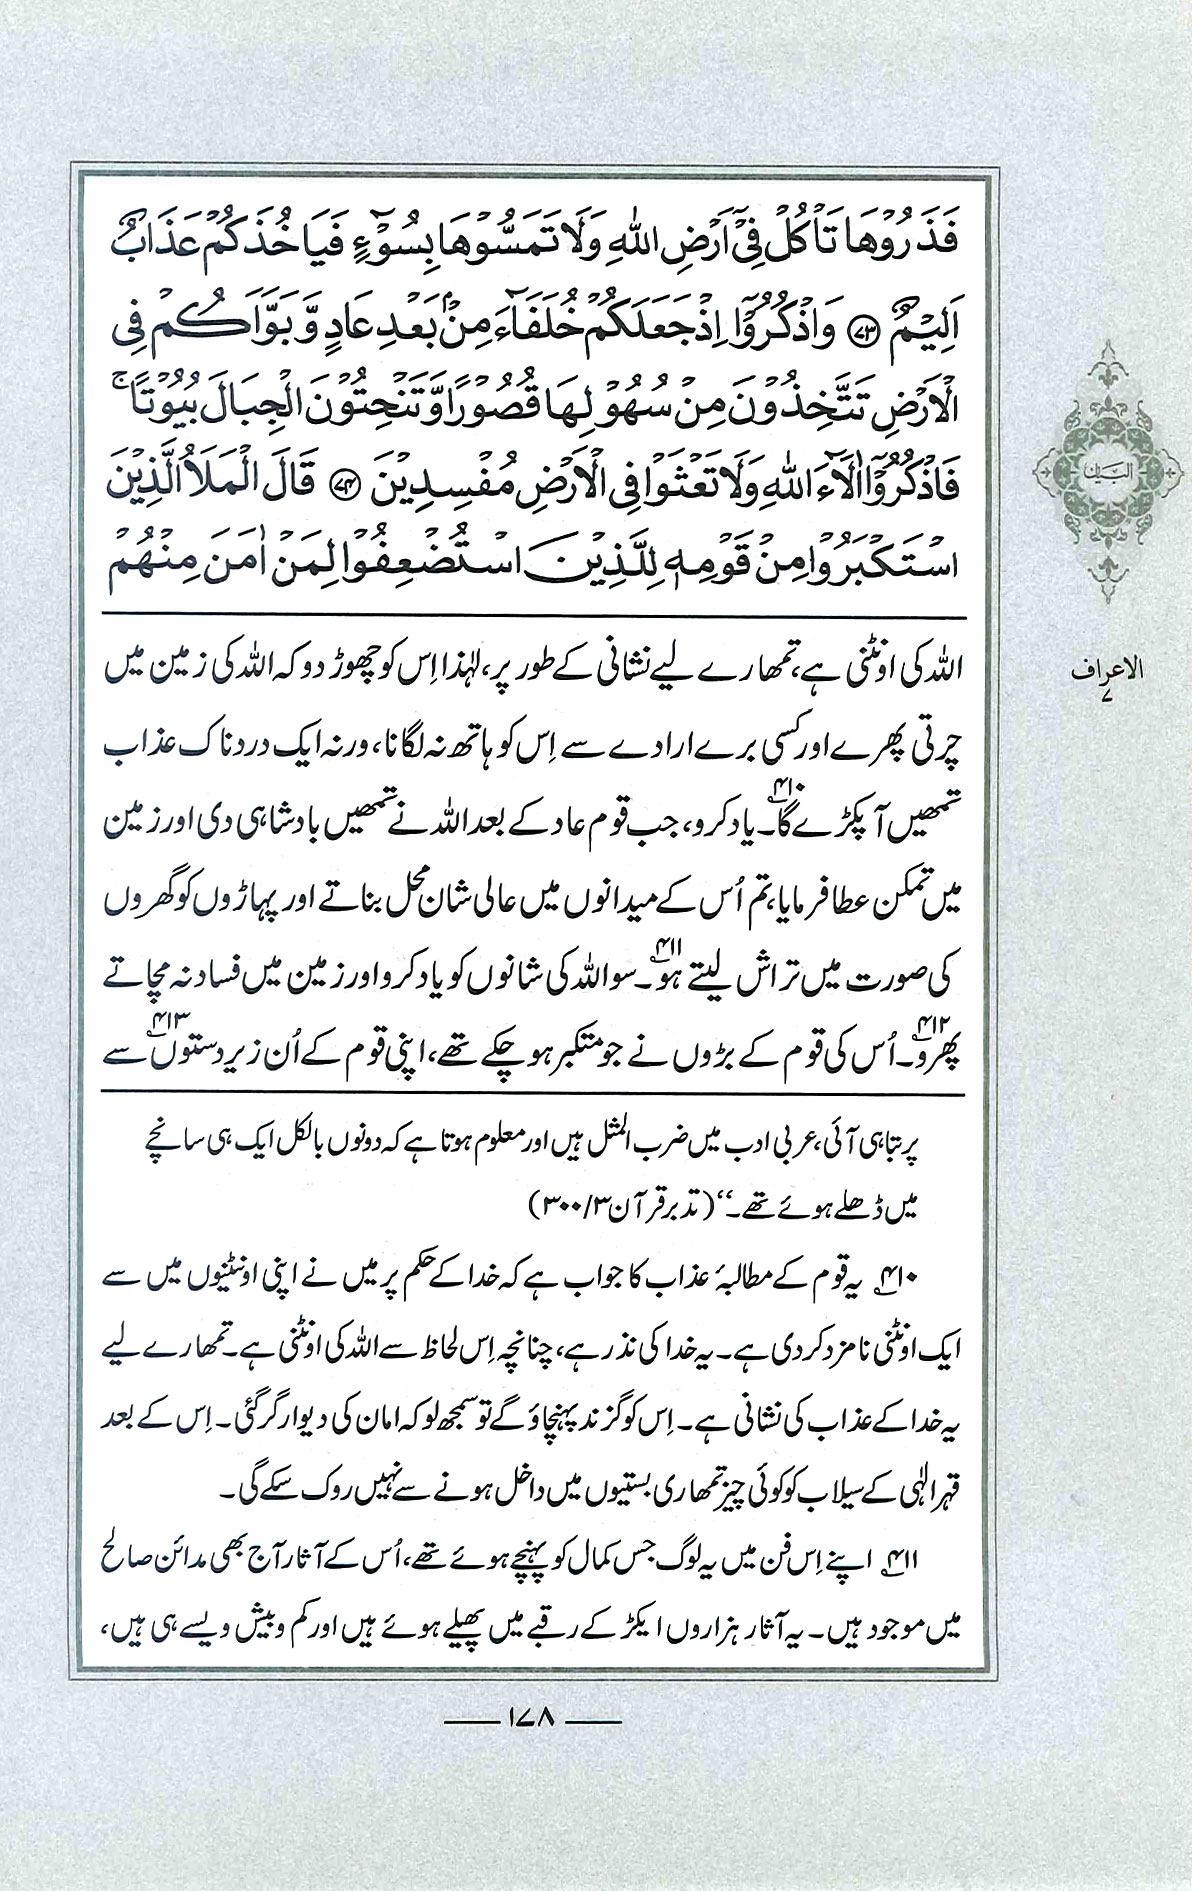 فَذَرُوْهَا تَاْكُلْ فِیْۤ اَرْضِ اللّٰهِ وَلَا تَمَسُّوْهَا بِسُوْٓءٍ فَیَاْخُذَكُمْ عَذَابٌ
اَلِیْمٌ ﴿۷۳﴾ وَاذْكُرُوْۤا اِذْ جَعَلَكُمْ خُلَفَآءَ مِنْۢ بَعْدِ عَادٍ وَّ بَوَّاَكُمْ فِی
الْاَرْضِ تَتَّخِذُوْنَ مِنْ سُهُوْلِهَا قُصُوْرًا وَّ تَنْحِتُوْنَ الْجِبَالَ بُیُوْتًا ۚ
فَاذْكُرُوْۤا اٰلَآءَ اللّٰهِ وَلَا تَعْثَوْا فِی الْاَرْضِ مُفْسِدِیْنَ ﴿۷۴﴾ قَالَ الْمَلَاُ الَّذِیْنَ
اسْتَكْبَرُوْا مِنْ قَوْمِهٖ لِلَّذِیْنَ اسْتُضْعِفُوْا لِمَنْ اٰمَنَ مِنْهُمْ
اللہ کی اونٹنی ہے، تمھارے لیے نشانی کے طور پر، لہٰذا اِس کو چھوڑ دو کہ اللہ کی زمین میں
چرتی پھرے اور کسی برے ارادے سے اِس کو ہاتھ نہ لگانا، ورنہ ایک دردناک عذاب
تمھیں آ پکڑے گا۔۴۱۰ یاد کرو، جب قوم عاد کے بعد اللہ نے تمھیں بادشاہی دی اور زمین
میں تمکن عطا فرمایا، تم اُس کے میدانوں میں عالی شان محل بناتے اور پہاڑوں کو گھروں
کی صورت میں تراش لیتے ہو۔۴۱۱ سو اللہ کی شانوں کو یاد کرو اور زمین میں فساد نہ مچاتے
پھرو۔۴۱۲ اُس کی قوم کے بڑوں نے جو متکبر ہو چکے تھے، اپنی قوم کے اُن زیردستوں۴۱۳ سے
پر تباہی آئی، عربی ادب میں ضرب المثل ہیں اور معلوم ہوتا ہے کہ دونوں بالکل ایک ہی سانچے
میں ڈھلے ہوئے تھے۔‘‘ (تدبر قرآن ۳/ ۳۰۰)
۴۱۰ یہ قوم کے مطالبۂ عذاب کا جواب ہے کہ خدا کے حکم پر میں نے اپنی اونٹنیوں میں سے
ایک اونٹنی نامزد کر دی ہے۔ یہ خدا کی نذر ہے، چنانچہ اِس لحاظ سے اللہ کی اونٹنی ہے۔ تمھارے لیے
یہ خدا کے عذاب کی نشانی ہے۔ اِس کو گزند پہنچاؤ گے تو سمجھ لو کہ امان کی دیوار گر گئی۔ اِس کے بعد
قہر الٰہی کے سیلاب کو کوئی چیز تمھاری بستیوں میں داخل ہونے سے نہیں روک سکے گی۔
۴۱۱ اپنے اِس فن میں یہ لوگ جس کمال کو پہنچے ہوئے تھے، اُس کے آثار آج بھی مدائن صالح
میں موجود ہیں۔ یہ آثار ہزاروں ایکڑ کے رقبے میں پھیلے ہوئے ہیں اور کم و بیش ویسے ہی ہیں،
البیان
الاعراف
۷
۱۷۸